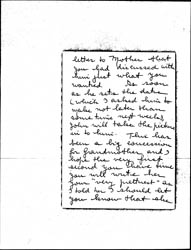 letter to Mother that
you had discussed with
him just what you
wanted. As soon
as he sets the date
(which I asked him to
make not later than
some time next week)
John will take the picture
in to him. This has
been a big concession
for Grandmother and I
hope the very first
second you have time
you will write her
your very prettiest - as
told in I should let
you know that she